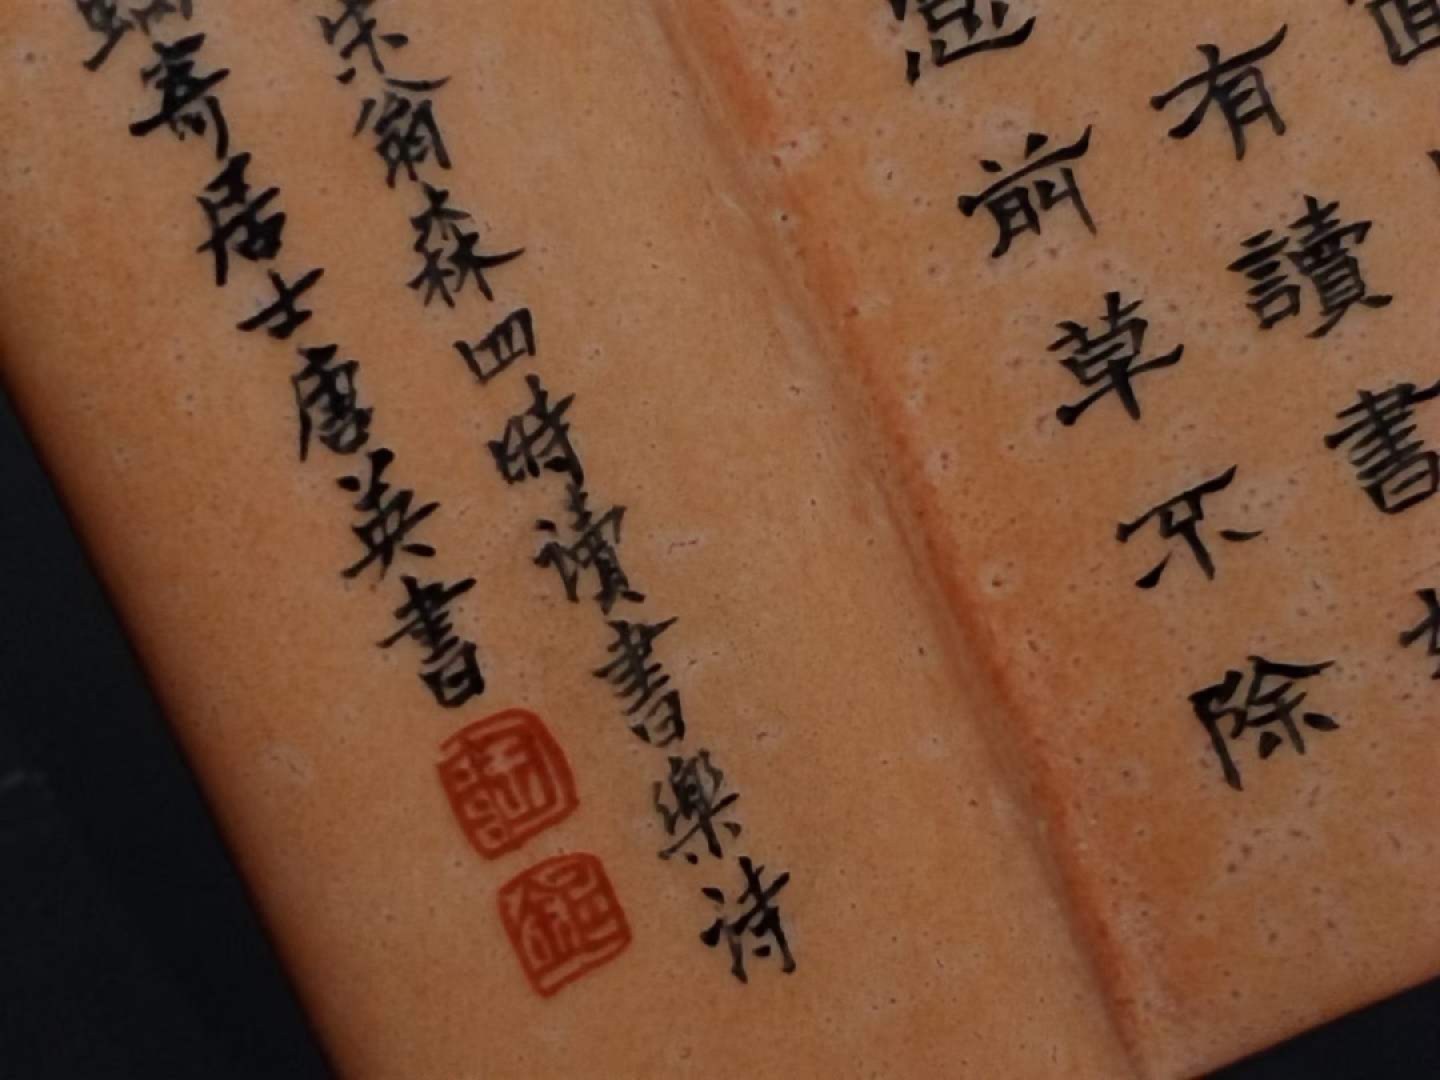 面
有讀書
前草不除
宋翁森四時讀書樂詩
蝸寄居士唐英書